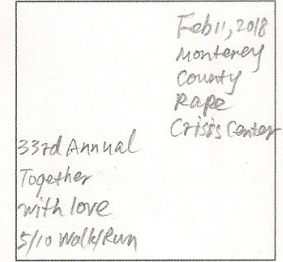 Feb 11, 2018
Monterey
County
Rape
Crisis Center
33rd Annual
Together
with love
5/10 Walk/Run